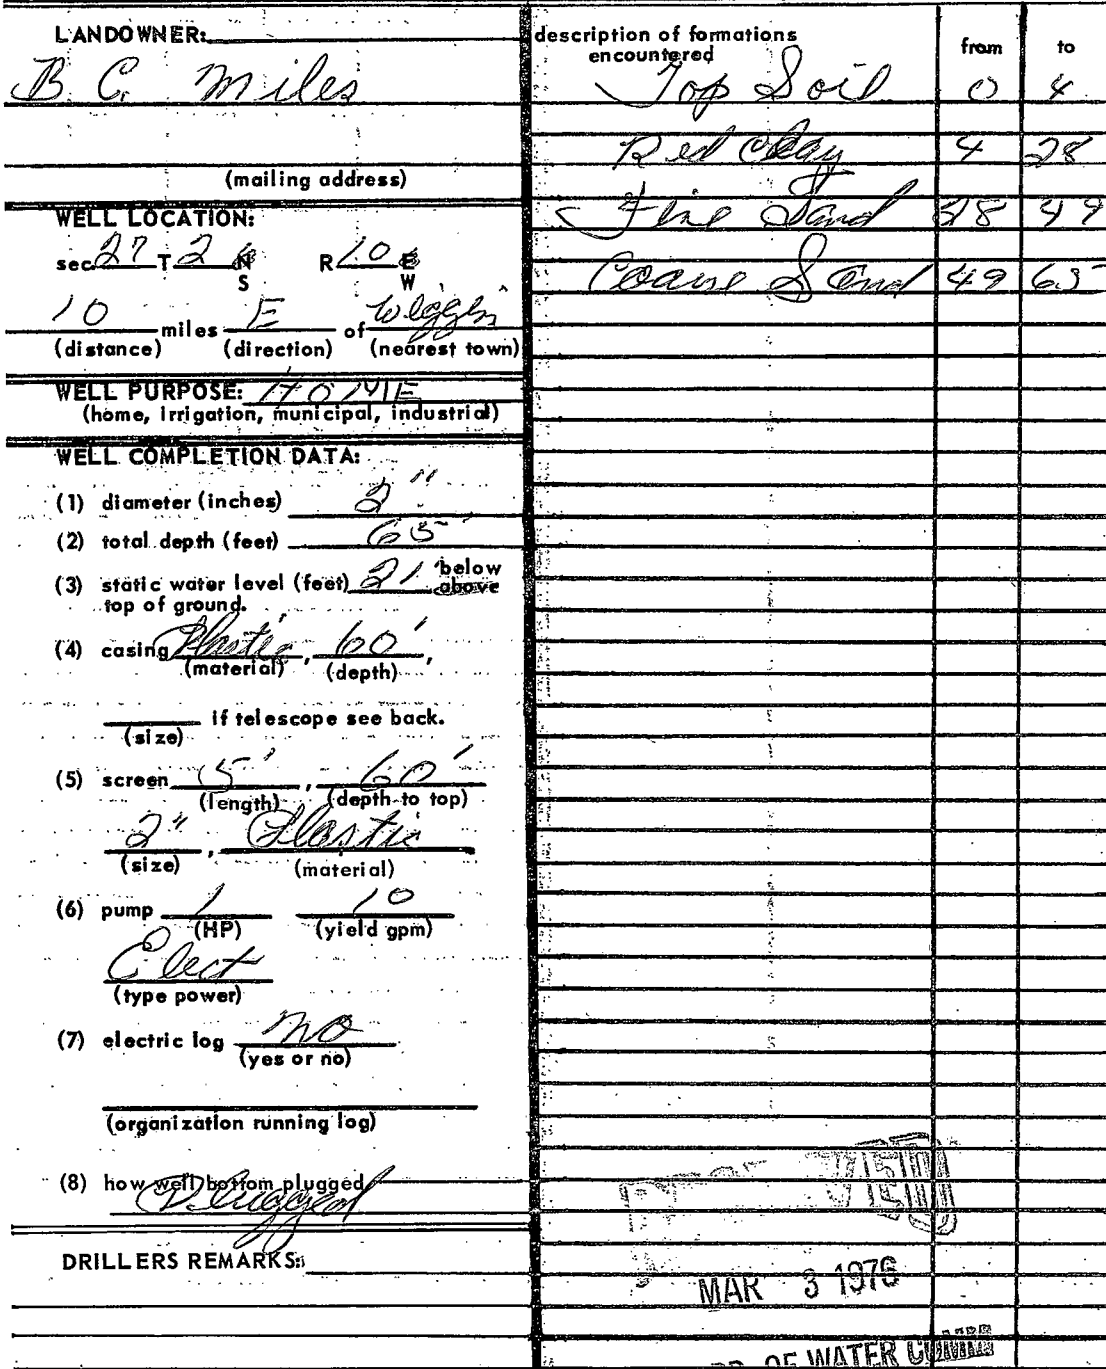 LANDOWNER:
B. C. Miles
(mailing address)
WELL LOCATION:
sec. 27 T 2 N R 10 E
S W
10 miles E of Wiggin
(distance) (direction) (nearest town)
WELL PURPOSE: HOME
(home, irrigation, municipal, industrial)
WELL COMPLETION DATA:
(1) diameter (inches) 2"
(2) total depth (feet) 65'
(3) static water level (feet) 21' below
above
top of ground.
(4) casing Plastic, 60',
(material) (depth)
if telescope see back.
(size)
(5) screen 5', 60'
(length) (depth to top)
2", Plastic
(size) (material)
(6) pump 1 10
(HP) (yield gpm)
Elect
(type power)
(7) electric log no
(yes or no)
(organization running log)
(8) how well bottom plugged
Plugged
DRILLERS REMARKS:
description of formations
encountered from to
Top Soil 0 4
Red Clay 4 28
Fine Sand 28 49
Coarse Sand 49 65
MAR 3 1976
OF WATER COMM